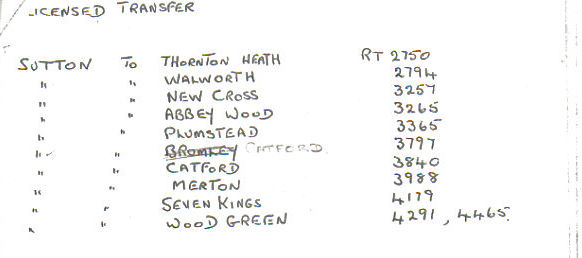 LICENSED TRANSFER
SUTTON TO THORNTON HEATH RT 2750
" " WALWORTH 2794
" " NEW CROSS 3257
" " ABBEY WOOD 3265
" " PLUMSTEAD 3365
" ✓ " BROMLEY CATFORD 3797
" " CATFORD 3840
" " MERTON 3988
" " SEVEN KINGS 4179
" " WOOD GREEN 4291, 4465.